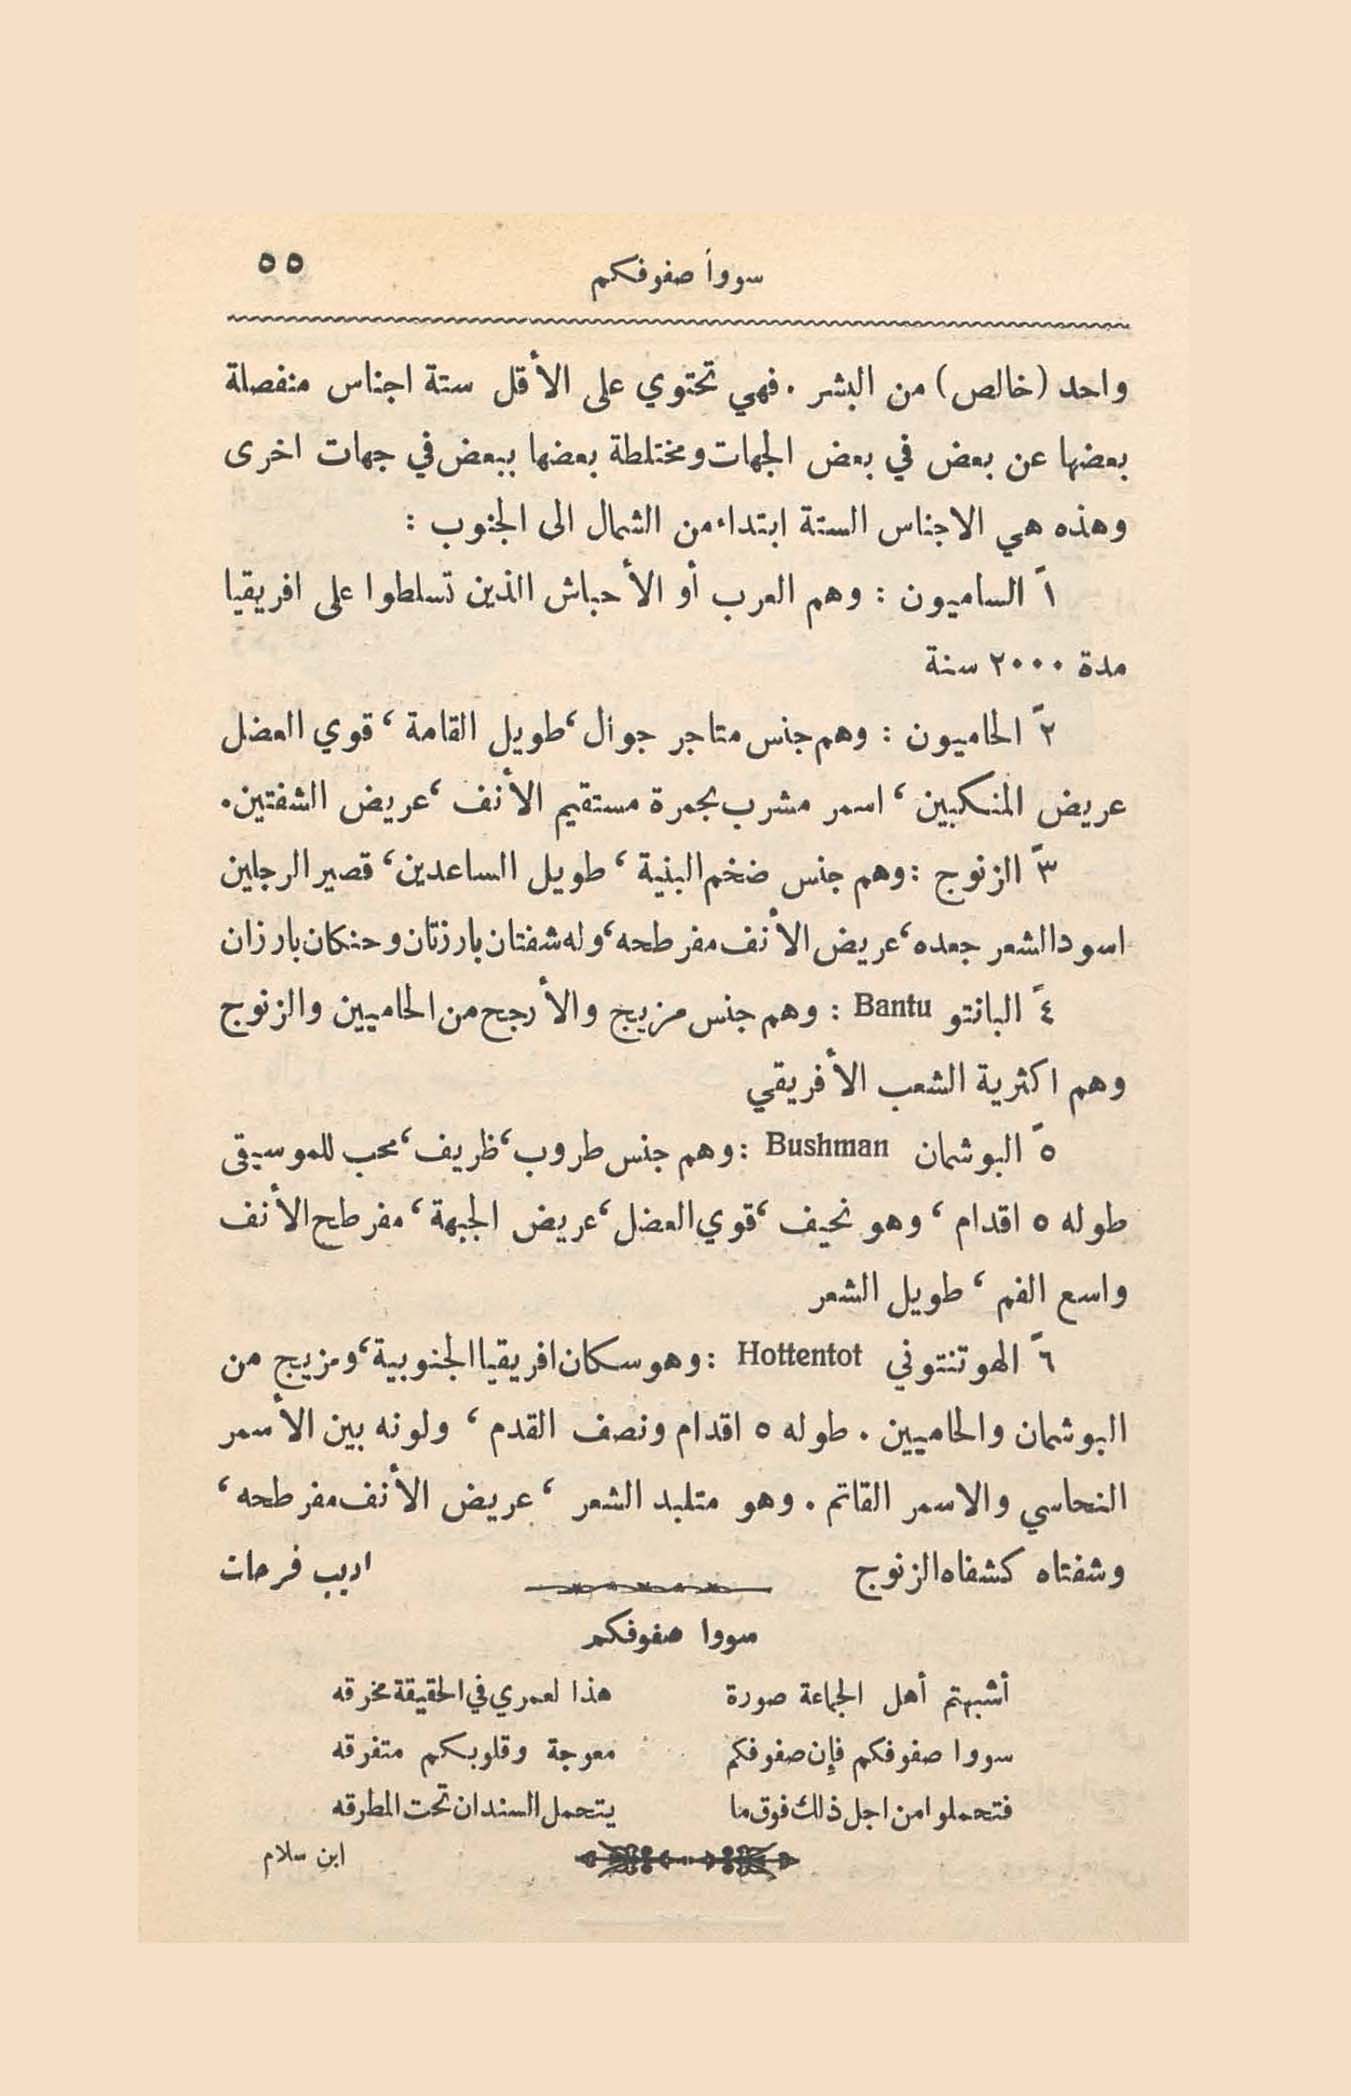 سوواً صفوفكم
٥٥
واحد (خالص) من البشر . فهي تحتوي على الأقل ستة اجناس منفصلة
بعضها عن بعض في بعض الجهات ومختلطة بعضها ببعض في جهات اخرى
وهذه هي الاجناس الستة ابتداء من الشمال الى الجنوب :
١ً الساميون : وهم العرب أو الأحباش الذين تسلطوا على افريقيا
مدة ٢٠٠٠ سنة
٢ً الحاميون : وهم جنس متاجر جوال ، طويل القامة ، قوي العضل
عريض المنكبين ، اسمر مشرب بجمرة مستقيم الأنف ، عريض الشفتين .
٣ً الزنوج : وهم جنس ضخم البنية ، طويل الساعدين ، قصير الرجلين
اسود الشعر جعده ، عريض الأنف مفرطحه ، وله شفتان بارزتان وحنكان بارزان
٤ً البانتو Bantu : وهم جنس مزيج والأرجح من الحاميين والزنوج
وهم اكثرية الشعب الأفريقي
٥ً البوشمان Bushman : وهم جنس طروب ، ظريف ، محب للموسيقى
طوله ٥ اقدام ، وهو نحيف ، قوي العضل ، عريض الجبهة ، مفرطح الأنف
واسع الفم ، طويل الشعر
٦ً الهوتنتوني Hottentot : وهو سكان افريقيا الجنوبية ، ومزيج من
البوشمان والحاميين . طوله ٥ اقدام ونصف القدم ، ولونه بين الأسمر
النحاسي والاسمر القاتم . وهو متلبد الشعر ، عريض الأنف مفرطحه ،
وشفتاه كشفاه الزنوج
اديب فرحات
سووا صفوفكم
أشبهتم أهل الجماعة صورة هذا لعمري في الحقيقة مخرقه
سووا صفوفكم فإن صفوفكم معوجة وقلوبكم متفرقه
فتحملوا من اجل ذلك فوق ما يتحمل السندان تحت المطرقه
ابن سلام